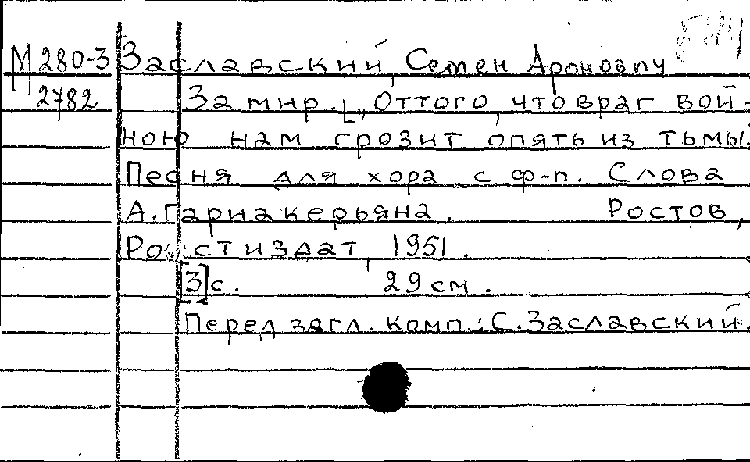 М 280-3 Заславский, Семен Аронович
2782 За мир. [„Оттого, что враг вой-
ною нам грозит опять из тьмы".
Песня для хора с ф-п. Слова
А. Гарнакерьяна. Ростов,
Ростиздат, 1951.
[3] с. 29 см.
Перед загл. комп.: С. Заславский.